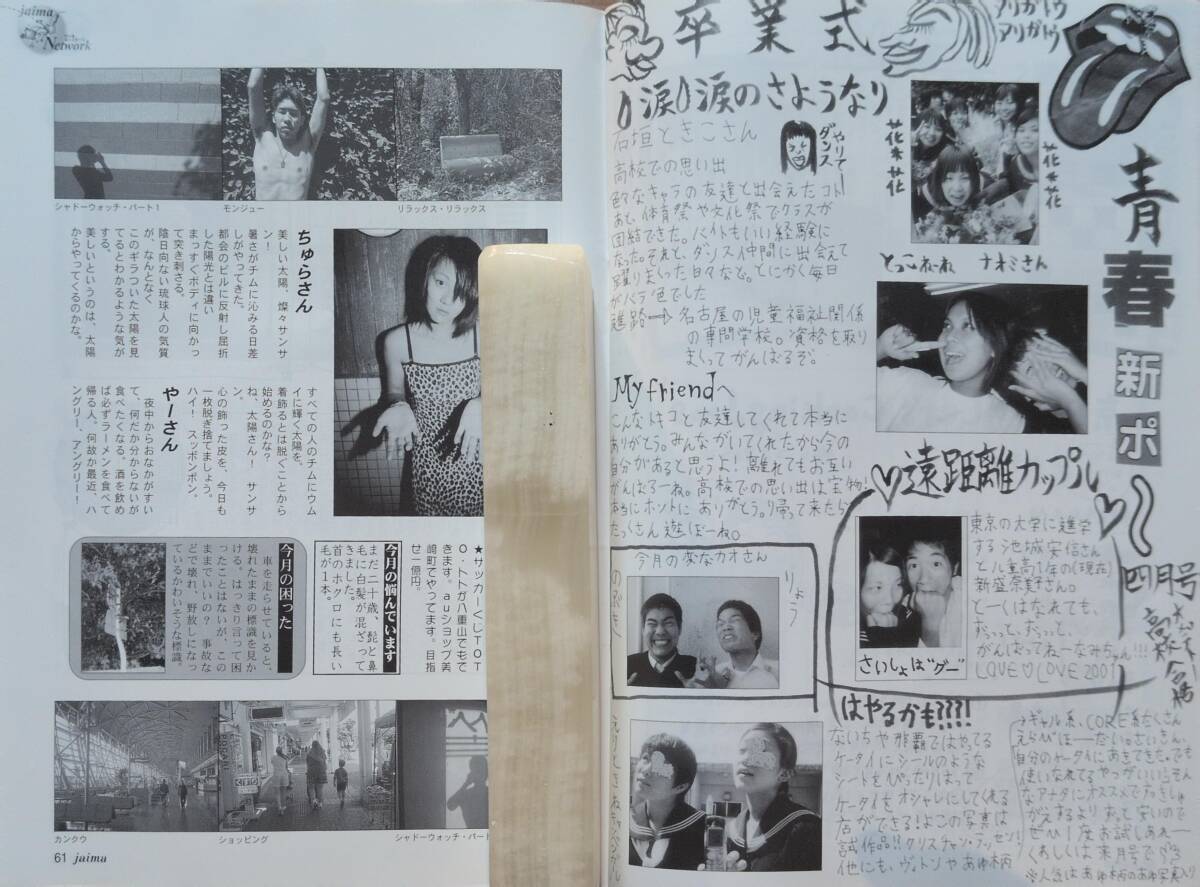 jaima
Network
シャドーウォッチ・パート1
モンジュー
リラックス・リラックス
ちゅらさん
美しい太陽、燦々サンサ
ン！
暑さがチムに沁みる日差
しがやってきた。
都会のビルに反射し屈折
した陽光とは違い
まっすぐボディに向かっ
て突き刺さる。
陰日向ない琉球人の気質
が、なんとなく
このギラついた太陽を見
てるとわかるような気が
する。
美しいというのは、太陽
からやってくるのかな。
すべての人のチムにウム
イに輝く太陽を。
着飾るとは脱ぐことから
始めるのかな？
ね、太陽さん！　サンサ
ン。
心の飾った皮を、今日も
一枚脱ぎ捨てましょう。
ハイ！　スッポンポン。
やーさん
夜中からおなかがすい
て、何だか分からないが
食べたくなる。酒を飲め
ば必ずラーメンを食べて
帰る人、何故か最近、ハ
ングリー、アングリー！
★サッカーくじTOT
O・トトガ八重山でもで
きます。auショップ美
崎町でやってます。目指
せ一億円。
今月の悩んでいます
まだ二十歳、髭と鼻
毛に白髪が混ざって
きました。
首のホクロにも長い
毛が1本。
今月の困った
車を走らせていると、
壊れたままの標識を見か
ける。はっきり言って困
ったことはないが、この
ままでいいの？　事故な
どで壊れ、野放しになっ
ているかわいそうな標識。
カンクウ
ショッピング
シャドーウォッチ・パート
61 jaima
卒業式
アリガトウ
アリガトウ
涙涙のさようなり
石垣ときこさん
やりてー
ダンス
高校での思い出
色々なキャラの友達と出会えたコト
あと、体育祭や文化祭でクラスが
団結できた。バイトもいい経験に
なった。それと、ダンス仲間に出会えて
踊りまくった日々など。とにかく毎日
がバラ色でした
進路→名古屋の児童福祉関係
の専門学校。資格を取り
まくってがんばるぞ。
花木花
花木花
とっこねーね　ナオミさん
青春新ポ
四月号
My friendへ
こんなトキコと友達してくれて本当に
ありがとう。みんながいてくれたから今の
自分があると思うよ！離れてもお互い
がんばろーね。高校での思い出は宝物！
本当にホントにありがとう。帰って来たら
たっくさん遊ぼーね。
遠距離カップル
東京の大学に進学
する池城安信さん
と八重高1年の(現在)
新盛奈美さん。
とーくはなれても、
ずぅっと、ずぅっと、
がんばってねーなみちゃん!!!
LOVE♡LOVE 2001
さいしょは"グー"
今月の変なカオさん
のぶき
りょう
はやるかも???!
ないちや那覇ではやってる
ケータイにシールのような
シートをぴったりはって
ケータイをオシャレにしてくれる
店ができる！よこの写真は
試作品!!クリスチャン・ラッセン！
他にも、ヴィトンやあゆ柄
ギャル系、CORE系たくさん
えらびほーだい。さいさん
自分のケータイにあきてきた。でも
使いなれてるやつがいい。そん
なアナタにオススメでヲもしゅ
がえするよりずっと安いので
ぜひ1度お試しあれー
くわしくは来月号で
※人気はあゆ柄のあゆ写真入り